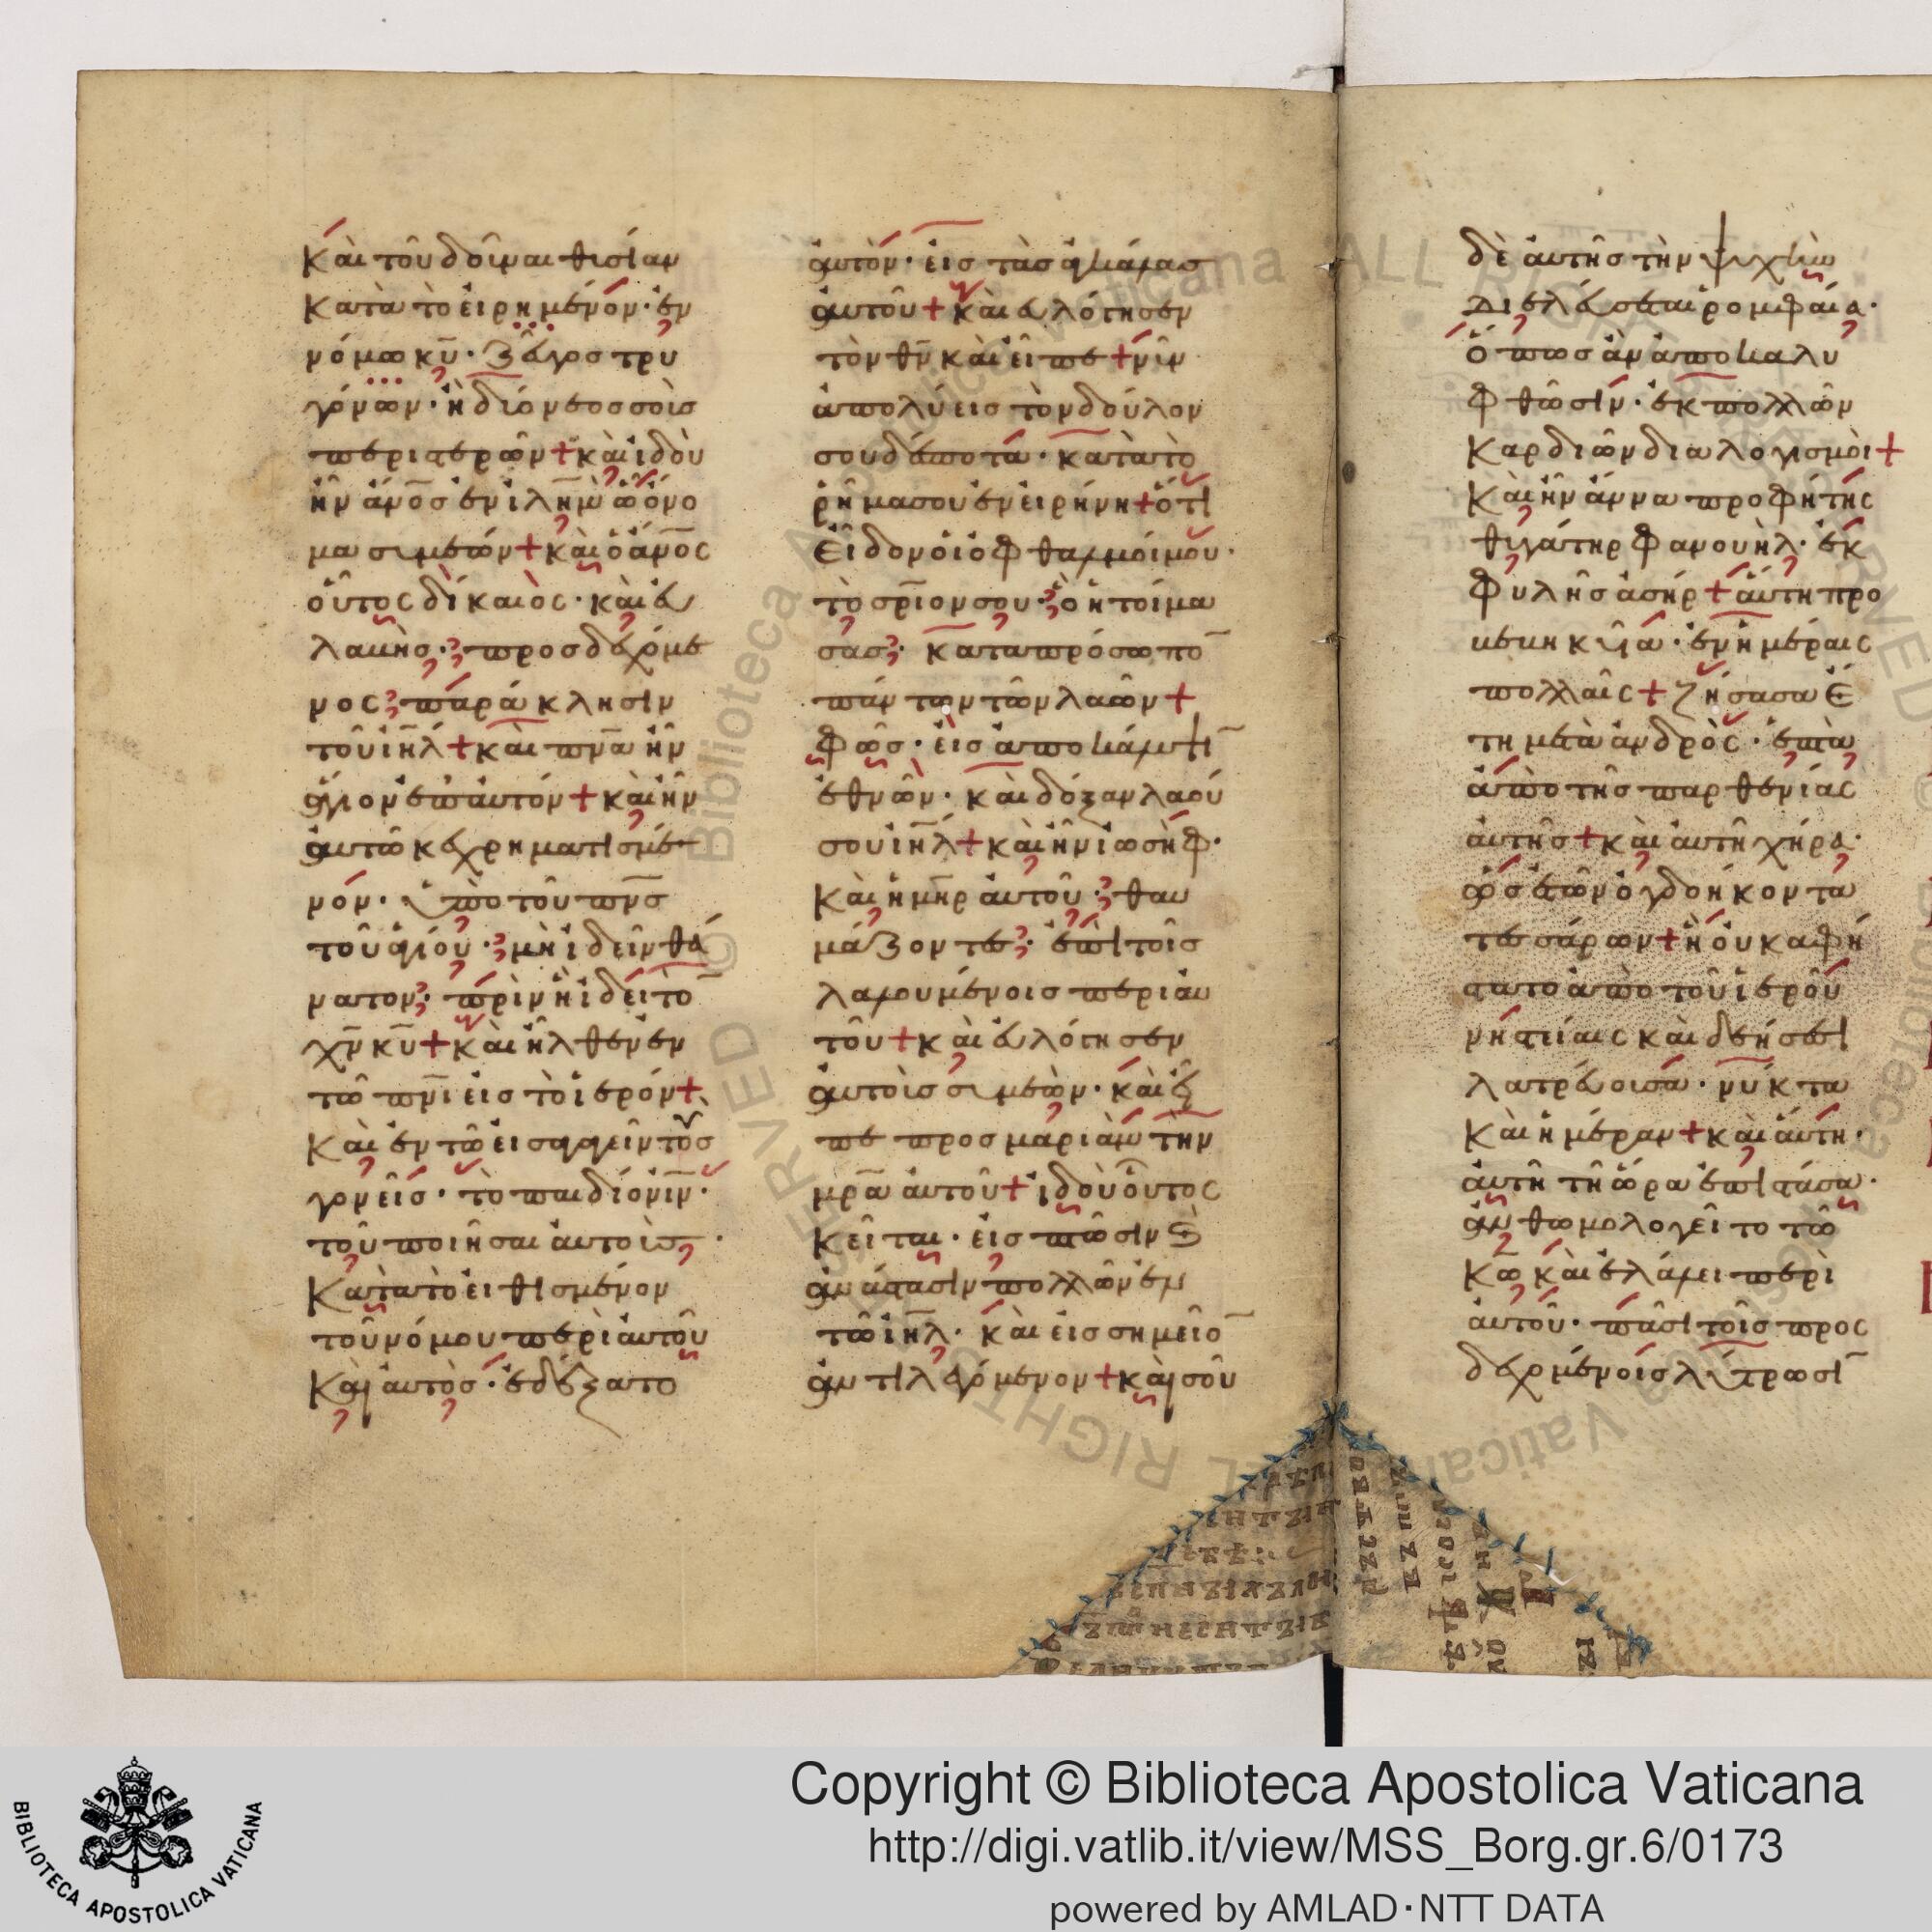 Καὶ τοῦ δοῦναι θυσίαν
κατὰ τὸ εἰρημένον· ἐν
νόμω κ̅υ̅· ζεῦγος τρυ
γόνων· ἢ δύο νεοσσοὺς
περιστερῶν + καὶ ἰδοὺ
ἦν ἄν̅ο̅ς ἐν ι̅λ̅η̅μ̅ ὧ ὄνο
μα συμεών + καὶ ὁ ἄν̅ο̅ς
οὗτος δίκαιος· καὶ εὐ
λαβὴς· προσδεχόμε
νος παράκλησιν
τοῦ ἰ̅η̅λ̅ + καὶ π̅ν̅α̅ ἦν
ἅγιον ἐπ' αὐτόν + καὶ ἦν
αὐτῶ κεχρηματισμέ
νον· ὑπὸ τοῦ π̅ν̅ς̅
τοῦ ἁγίου· μὴ ἰδεῖν θά
νατον· πρὶν ἢ ἴδει το̅
χ̅ν̅ κ̅υ̅ + καὶ ἦλθεν ἐν
τῶ π̅ν̅ι̅ εἰς τὸ ἱερόν +
Καὶ ἐν τῶ εἰσαγαγεῖν τοὺς
γονεῖς· τὸ παιδίον ἰ̅ν̅·
τοῦ ποιῆσαι αὐτοὺς·
Κατὰ τὸ εἰθισμένον
τοῦ νόμου περὶ αὐτοῦ
Καὶ αὐτὸς· ἐδέξατο
αὐτὸν· εἰς τὰς ἀγκάλας
αὐτοῦ + καὶ εὐλόγησεν
τὸν θ̅ν̅ καὶ εἶπε + νῦν
ἀπολύεις τὸν δοῦλον
σου δέσποτα· κατὰ τὸ
ρῆμα σου ἐν εἰρήνη + ὅτι
Εἶδον οἱ ὀφθαλμοί μου·
τὸ σ̅ρ̅ιον σου· ὃ ἡτοίμα
σας· κατὰ πρόσωπο̅
πάντων τῶν λαῶν +
Φῶς· εἰς ἀποκάλυψι̅
ἐθνῶν· καὶ δόξαν λαοῦ
σου ἰ̅η̅λ̅ + καὶ ἦν ἰωσὴφ·
Καὶ ἡ μ̅η̅ρ̅ αὐτοῦ· θαυ
μάζοντες· ἐπὶ τοῖς
λαλουμένοις περὶ αὐ
τοῦ + καὶ εὐλόγησεν
αὐτοὺς συμεὼν· καὶ εἶ
πε προς μαριὰμ τὴν
μ̅ρ̅α̅ αὐτοῦ + ἰδοὺ οὗτος
κεῖται· εἰς πτῶσιν ϗ
ἀνάστασιν πολλῶν ἐν
τῶ ἰ̅η̅λ̅· καὶ εἰς σημεῖο̅
ἀντιλεγόμενον + καὶ σοῦ
δὲ αὐτῆς τὴν ψυχὴν
διελεύσεται ρομφαία·
ὅπως ἂν ἀποκαλυ
φθῶσιν· ἐκ πολλῶν
Καρδιῶν διαλογισμοὶ +
Καὶ ἦν ἄννα προφῆτης
θυγάτηρ φανουὴλ· ἐκ
φυλῆς ἀσήρ + αὕτη προ
βεβηκυῖα· ἐν ἡμέραις
πολλαῖς + ζήσασα ἔ
τη μετὰ ἀνδρὸς· ἑπτὰ
ἀπὸ τῆς παρθενίας
αὐτῆς + καὶ αὐτὴ χήρα·
ὡς ἐτῶν ὀγδοήκοντα
τεσσάρων + ἣ οὐκ ἀφί
στατο ἀπὸ τοῦ ἱεροῦ
νηστείαις καὶ δεήσεσι
λατρεύουσα· νύκτα
Καὶ ἡμέραν + καὶ αὕτη·
αὐτῆ τῆ ὥρα ἐπιστᾶσα·
ἀνθωμολογεῖτο τῶ
Κ̅ω̅ καὶ ἐλάλει περὶ
αὐτοῦ· πᾶσι τοῖς προς
δεχομένοις λύτρωσι̅
Copyright © Biblioteca Apostolica Vaticana
http://digi.vatlib.it/view/MSS_Borg.gr.6/0173
powered by AMLAD·NTT DATA
BIBLIOTECA APOSTOLICA VATICANA